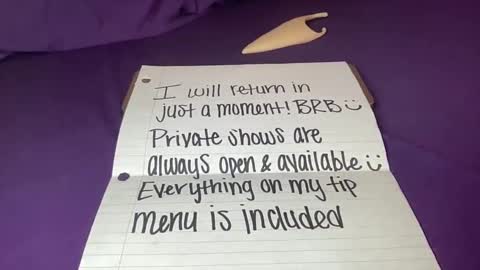 I will return in
just a moment! BRB
Private shows are
always open & available
Everything on my tip
menu is included